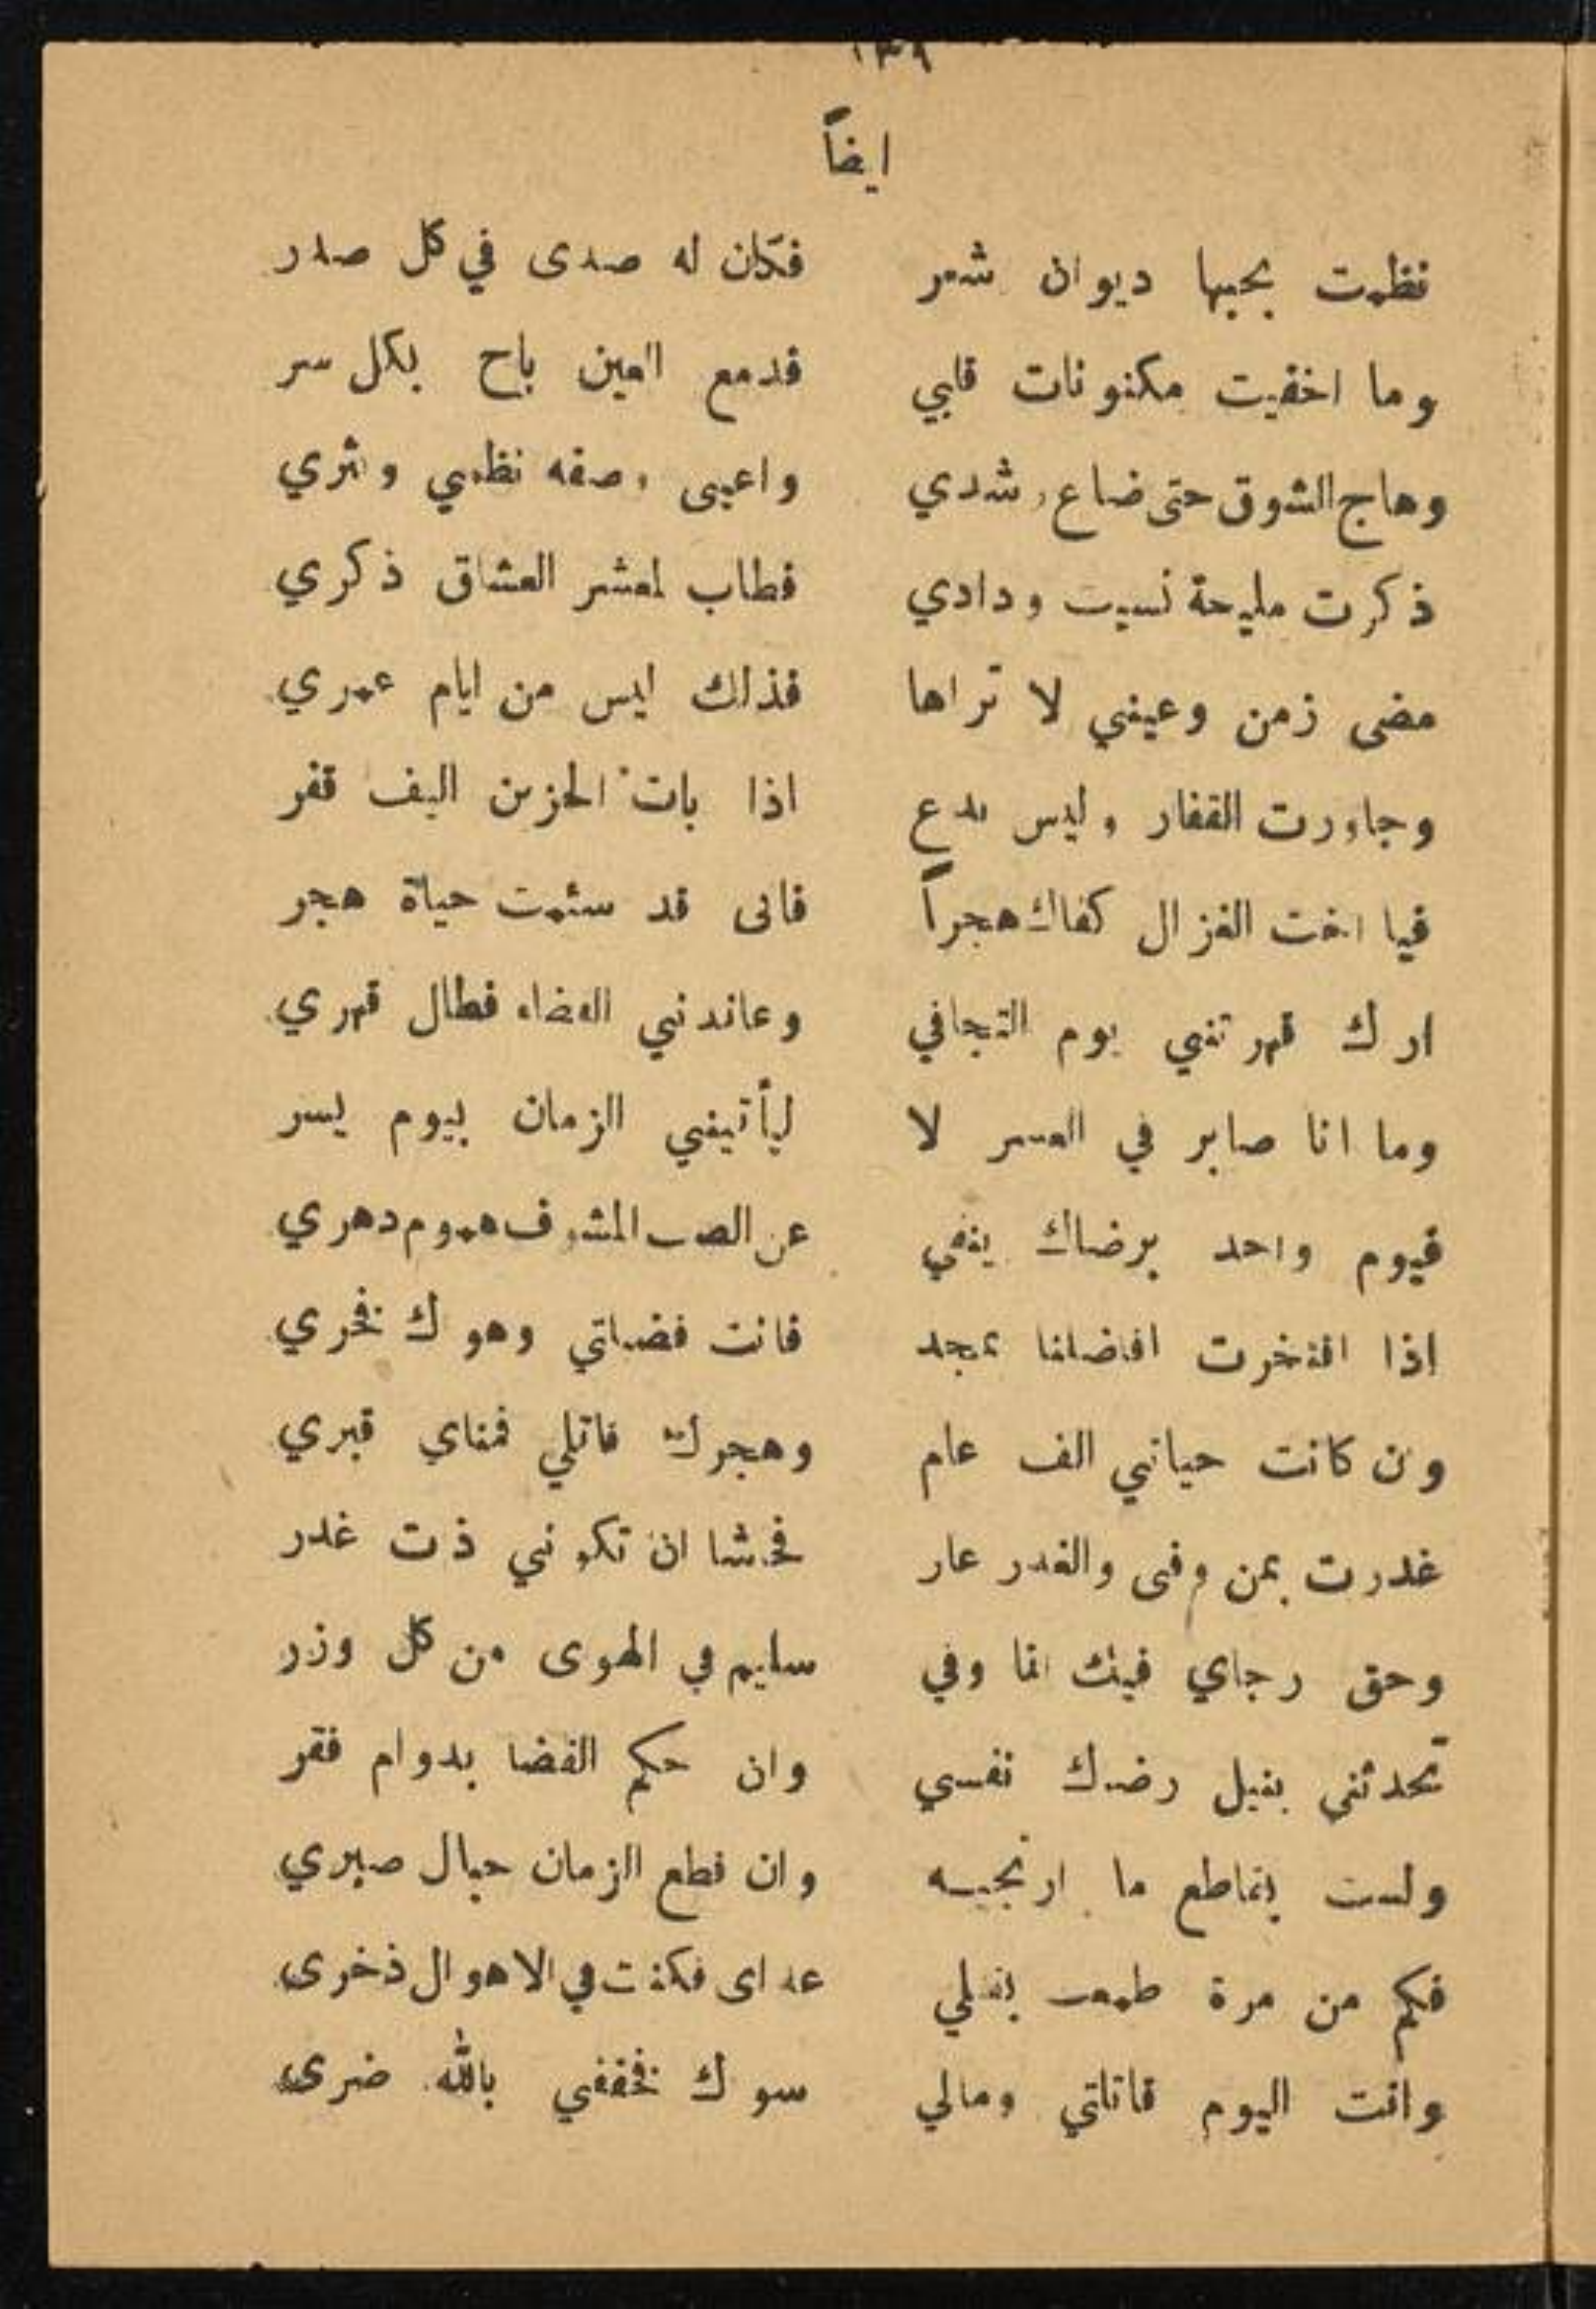 ١٣٩
ايضاً
نظمت بحبها ديوان شعر فكان له صدى في كل صدر
وما اخفيت مكنونات قلبي فدمع العين باح بكل سر
وهاج الشوق حتى ضاع رشدي واعيى وصفه نظمي ونثري
ذكرت مليحة نسيت ودادي فطاب لمعشر العشاق ذكري
مضى زمن وعيني لا تراها فذلك ليس من ايام عمري
وجاورت القفار وليس بدع اذا بات الحزين اليف قفر
فيا اخت الغزال كفاك هجراً فانى قد سئمت حياة هجر
اراك قهرتني يوم التجافي وعاندني القضاء فطال قهري
وما انا صابر في العسر لا ليأتيني الزمان بيوم يسر
فيوم واحد برضاك ينفي عن الصب المشوق هموم دهري
اذا افتخرت افاضلنا بمجد فانت فضيلتي وهواك فخري
وان كانت حياتي الف عام وهجرك قاتلي فمناي قبري
غدرت بمن وفى والغدر عار فحاشا ان تكوني ذات غدر
وحق رجاي فيك انا وفي سليم في الهوى من كل وزر
تحدثني بنيل رضاك نفسي وان حكم القضا بدوام فقر
ولست بقاطع ما ارتجيه وان قطع الزمان حبال صبري
فكم من مرة طمعت بقتلي عداى فكنت في الاهوال ذخرى
وانت اليوم قاتلتي ومالي سواك فخففي بالله ضرى